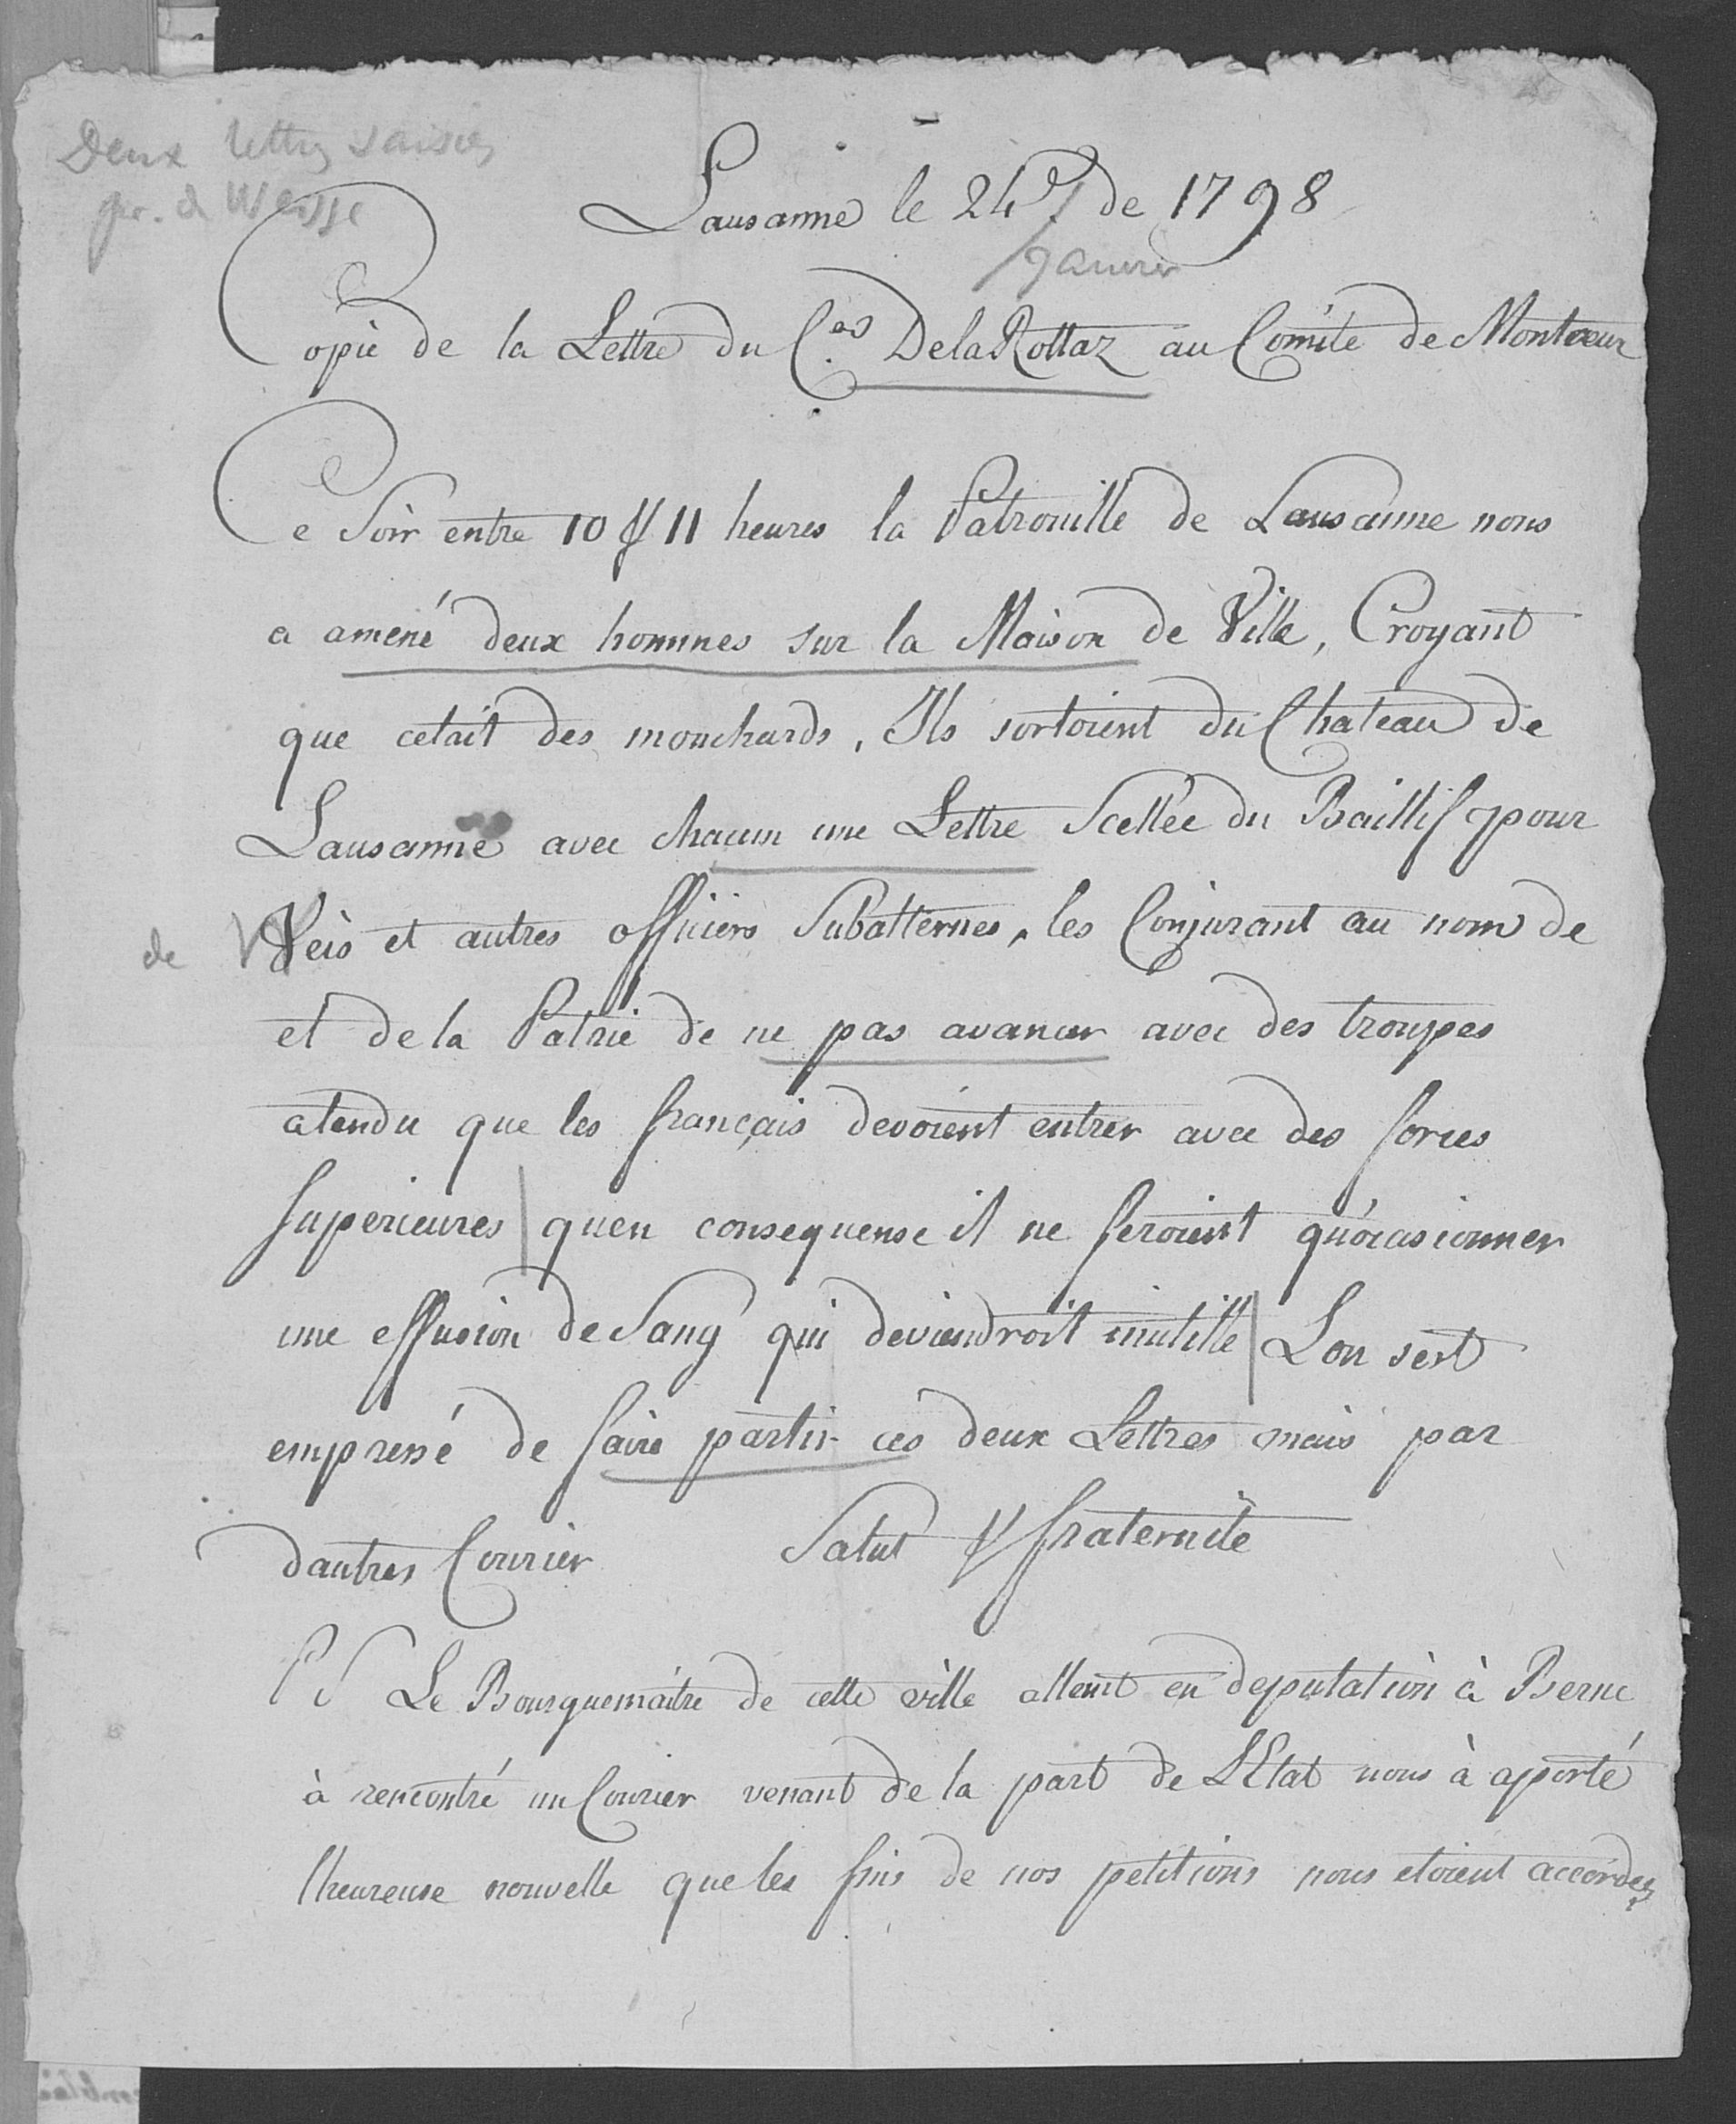 Deux lettres saisies
pr. de Weisse
Lausanne le 24 de 1798
Janvier
Copie de la Lettre du C.en DelaRottaz au Comite de Montreux
Ce Soir entre 10 & 11 heures la Patrouille de Lausanne nous
a amené deux hommes sur la Maison de Ville, Croyant
que cetait des mouchards, Ils sortoient du Chateau de
Lausanne avec chacun une Lettre Scellée du Baillif pour
de Weis et autres officiers Subalternes, les Conjurant au nom de
et de la Patrie de ne pas avancer avec des troupes
atendu que les français devoient entrer avec des forces
Superieures quen consequense il ne feroient qu'ocasionner
une effusion de Sang qui deviendroit inutille Lon sest
empressé de faire partir ces deux Lettres mais par
dautres Courier Salut & fraternite
PS Le Bourguemaitre de cette ville allant en deputation à Berne
à rencontré un Courier venant de la part de LEtat nous à aporté
lheureuse nouvelle que les fins de nos petitions nous etoient accordees